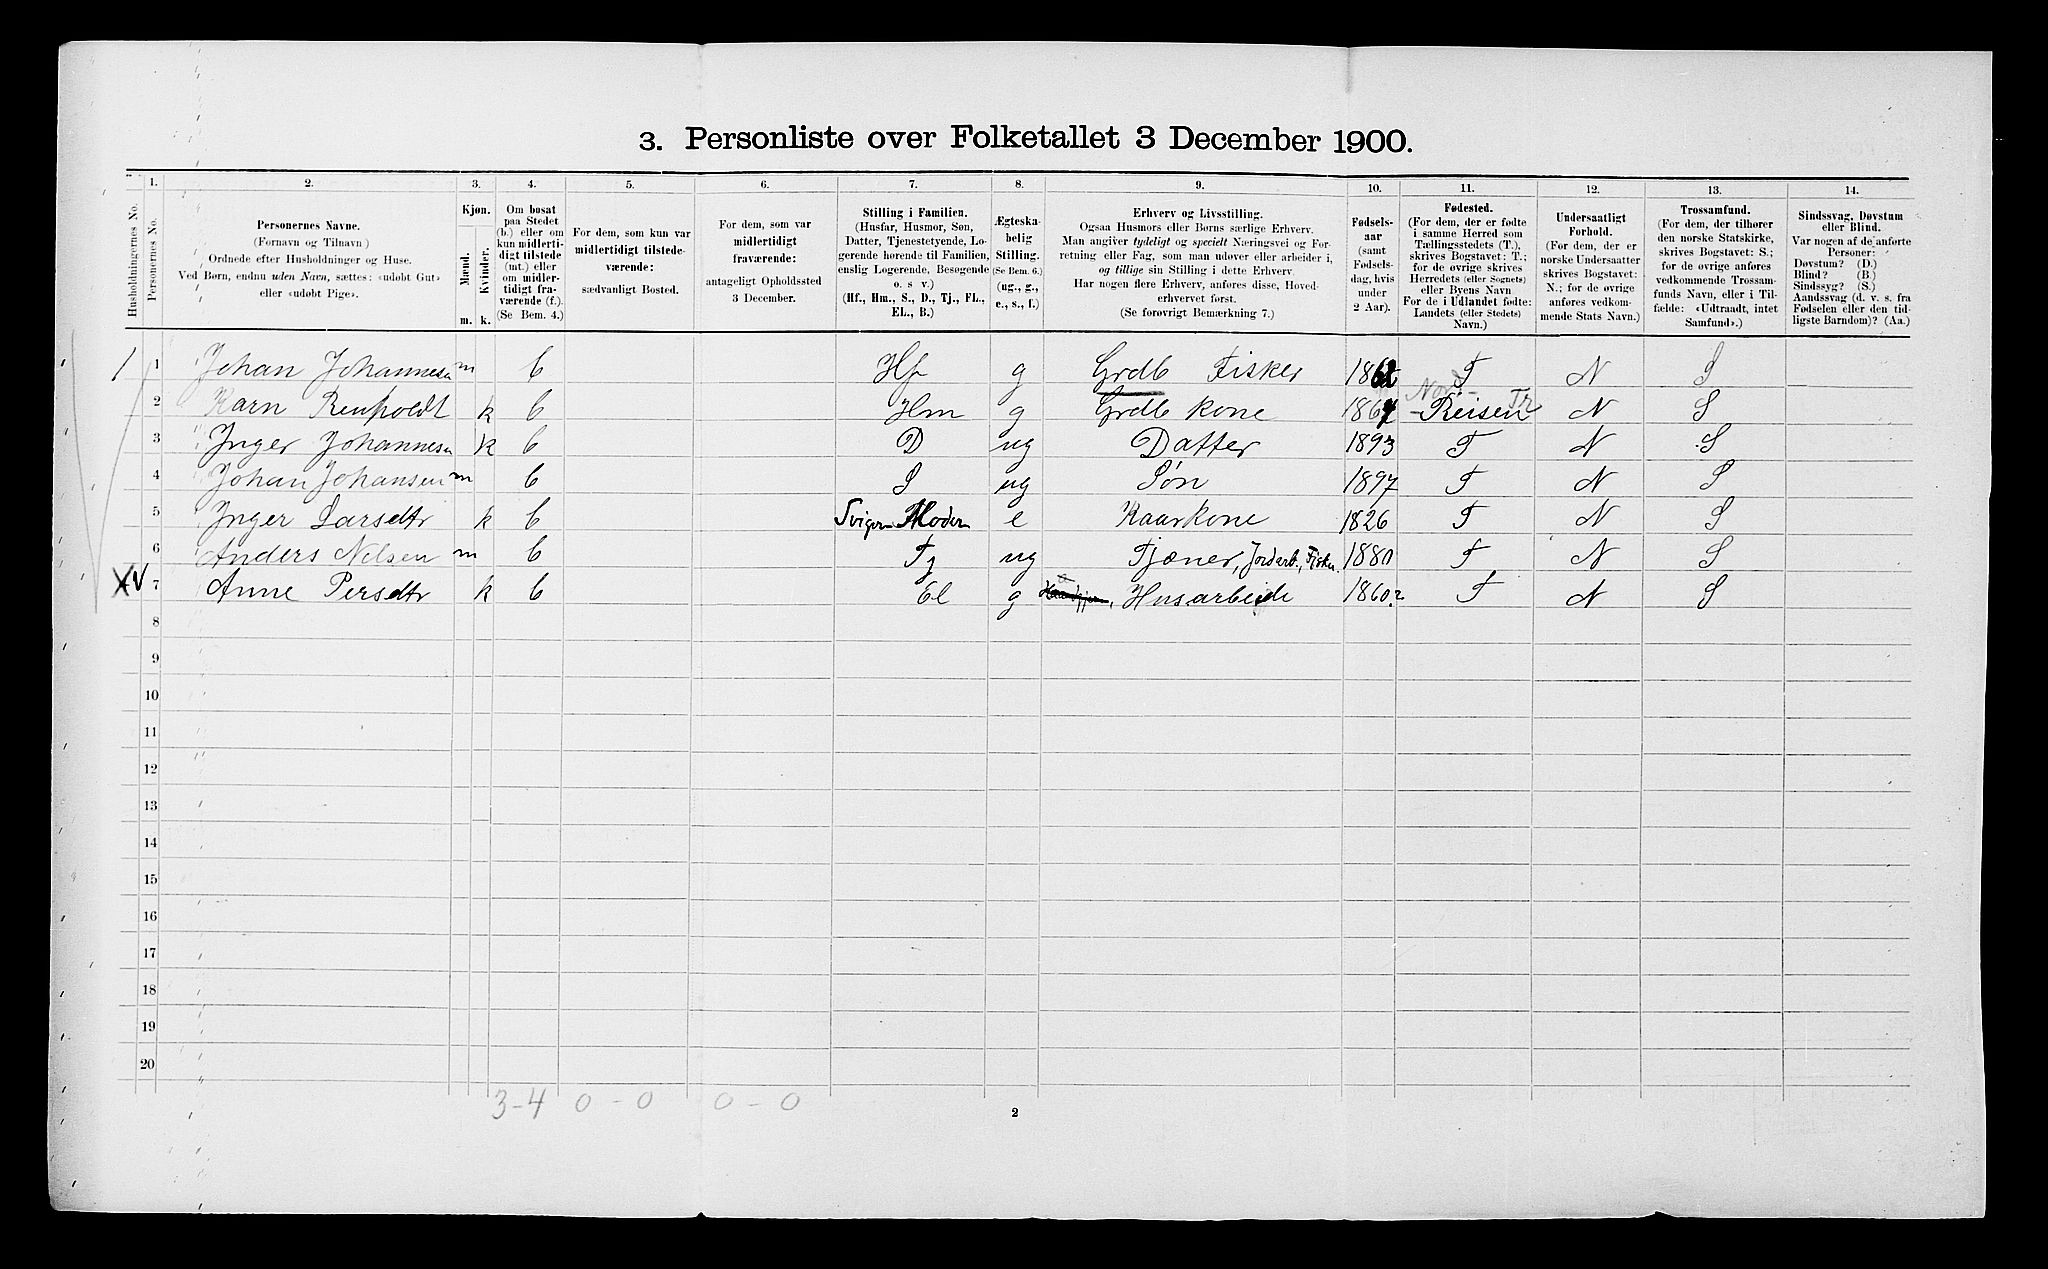 3. Personliste over Folketallet 3 December 1900.
1. 2. 3. 4. 5. 6. 7. 8. 9. 10. 11. 12. 13. 14.
Husholdningernes No.
Personernes No.
Personernes Navne.
(Fornavn og Tilnavn)
Ordnede efter Husholdninger og Huse.
Ved Børn, endnu uden Navn, sættes: «udøbt Gut»
eller «udøbt Pige».
Kjøn.
Mænd.
Kvinder.
m. k.
Om bosat
paa Stedet
(b.) eller om
kun midlerti-
digt tilstede
(mt.) eller
om midler-
tidigt fra-
værende (f.).
(Se Bem. 4.)
For dem, som kun var
midlertidigt tilstede-
værende:
sædvanligt Bosted.
For dem, som var
midlertidigt
fraværende:
antageligt Opholdssted
3 December.
Stilling i Familien.
(Husfar, Husmor, Søn,
Datter, Tjenestetyende, Lo-
gerende hørende til Familien,
enslig Logerende, Besøgende
o. s v.)
(Hf., Hm., S., D., Tj., FL.,
EL., B.)
Ægteska-
belig
Stilling.
(Se Bem. 6.)
(ug., g.,
e., s., f.)
Erhverv og Livsstilling.
Ogsaa Husmors eller Børns særlige Erhverv.
Man angiver tydeligt og specielt Næringsvei og For-
retning eller Fag, som man udøver eller arbeider i,
og tillige sin Stilling i dette Erhverv.
Har nogen flere Erhverv, anføres disse, Hoved-
erhvervet først.
(Se forøvrigt Bemærkning 7.)
Fødsels-
aar
(samt
Fødsels-
dag, hvis
under
2 Aar).
Fødested.
(For dem, der er fødte
i samme Herred som
Tællingsstedets (T.),
skrives Bogstavet: T.;
for de øvrige skrives
Herredets (eller Sognets)
eller Byens Navn
For de i Udlandet fødte:
Landets (eller Stedets)
Navn.)
Undersaatligt
Forhold.
(For dem, der er
norske Undersaatter
skrives Bogstavet:
N.; for de øvrige
anføres vedkom-
mende Stats Navn.)
Trossamfund.
(For dem, der tilhører
den norske Statskirke,
skrives Bogstavet: S.;
for de øvrige anføres
vedkommende Trossam-
funds Navn, eller i Til-
fælde: «Udtraadt, intet
Samfund».)
Sindssvag, Døvstum
eller Blind.
Var nogen af de anførte
Personer:
Døvstum? (D.)
Blind? (B.)
Sindssyg? (S.)
Aandssvag (d. v. s. fra
Fødselen eller den tid-
ligste Barndom)? (Aa.)
1 1 Johan Johannesn m b Hf g Grdb Fisker 1862 T N S
2 Karn Renholdt k b Hm g Grdb kone 1867 Nord-Reisen Tr N S
3 Inger Johannesn k b D ug Datter 1893 T N S
4 Johan Johansen m b S ug Søn 1897 T N S
5 Inger Larsdtr k b Sviger Moder e Kaarkone 1826 T N S
6 Anders Nilsen m b Tj ug Tjæner, Jordarb., Fisker. 1880 T N S
7 Anne Persdtr k b El g Husarbeide 1860? T N S
8
9
10
11
12
13
14
15
16
17
18
19
20
3-4 0-0 0-0
2